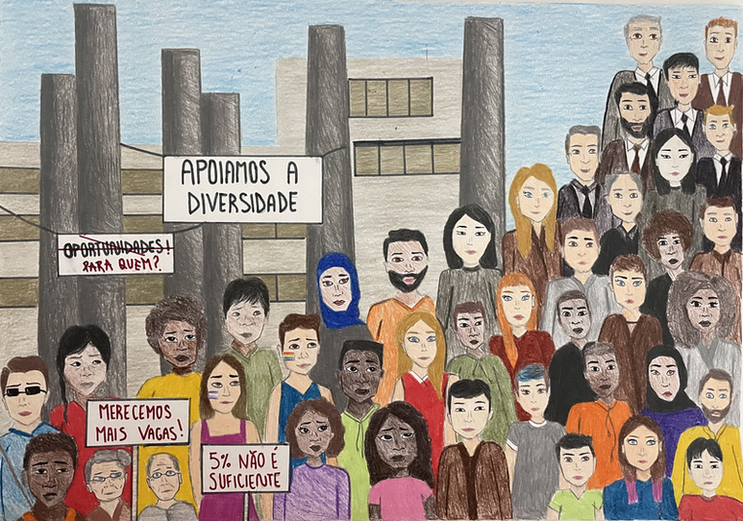 APOIAMOS A
DIVERSIDADE
OPORTUNIDADES!
PARA QUEM?
MERECEMOS
MAIS VAGAS!
5% NÃO É
SUFICIENTE